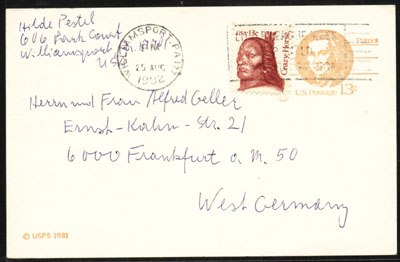 Hilde Pestel
606 Park Court
Williamsport
U
WILLIAMSPORT, PA 177
PM
25 AUG
1982
USA 13c
Crazy Horse
Patriot
US Postage 13¢
Herrn und Frau Alfred Geller
Ernst-Kahn-Str. 21
6000 Frankfurt a. M. 50
West Germany
© USPS 1981